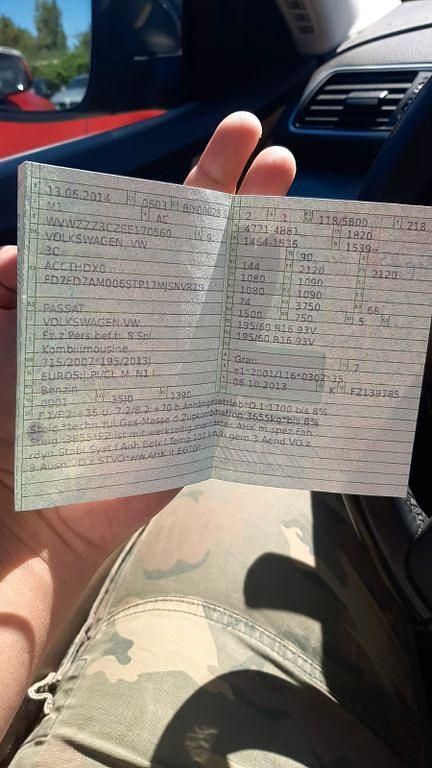 13.06.2014 0603 BJY00028 3
M1 AC
WVWZZZ3CZEE170560 9
VOLKSWAGEN, VW
3C
ACCTHDX0
FD7FD7AM006STP17MJSNVR29
PASSAT
VOLKSWAGEN-VW
Fz.z.Pers.bef.b. 8 Spl.
Kombilimousine
715/2007*195/2013J
EURO5;I:PI/CI, M, N1 I
Benzin
0001 3510 1390
2 1 118/5800 218
4771-4881 1820
1464-1536 1539
90
144 2120 2120
1080 1090
1080 1090
74 3750 68
1500 750 5
195/60 R16 93V
195/60 R16 93V
Grau 7
e1*2001/116*0307*35
08.10.2013 K FZ139785
zu J/F.2: + 35 u. 7.2/8.2:+70 b.Anhängebetrieb*O.1:1700 bis 8%
Steig.*techn.zul.Ges-Masse d.Zugkombination 3655kg*b.8%
Steig. 3855*Fz.ist mit werkseitig montierter AHK m.spez.Fah
rdyn.Stabi.Syst.f.Anh.Betr.(Temp.100 km/h gem.3.Aend.VO.z.
9.Ausn.VO.z.STVO*ww.AHK lt.EGTG*